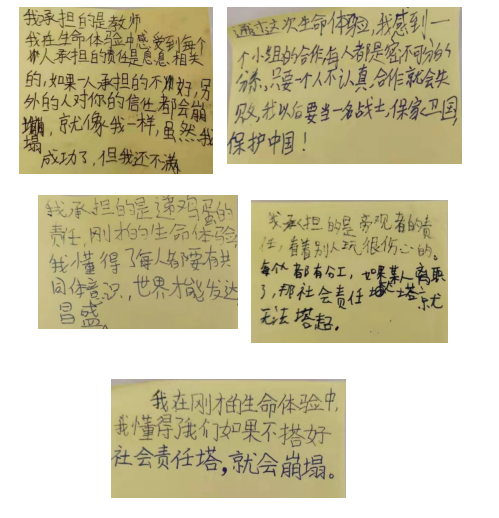 我承担的是教师
我在生命体验中感受到每个
人承担的责任是息息相关
的,如果一人承担的不好,另
外的人对你的信任都会崩
塌,就像我一样,虽然我
成功了,但我还不满
通过这次生命体验,我感到一
个小组的合作,每人都是密不可分的
只要一个人不认真,合作就会失
败,我以后要当一名战士,保家卫国,
保护中国!
我承担的是递鸡蛋的
责任,刚才的生命体验,
我懂得了每人都要有共
同体意识,世界才能发达
昌盛。
我承担的是旁观者的责
任,看着别人玩很伤心的。
每个人都有分工,如果某人离职
了,那社会责任塔就
无法塔起。
我在刚才的生命体验中,
我懂得了我们如果不搭好
社会责任塔,就会崩塌。